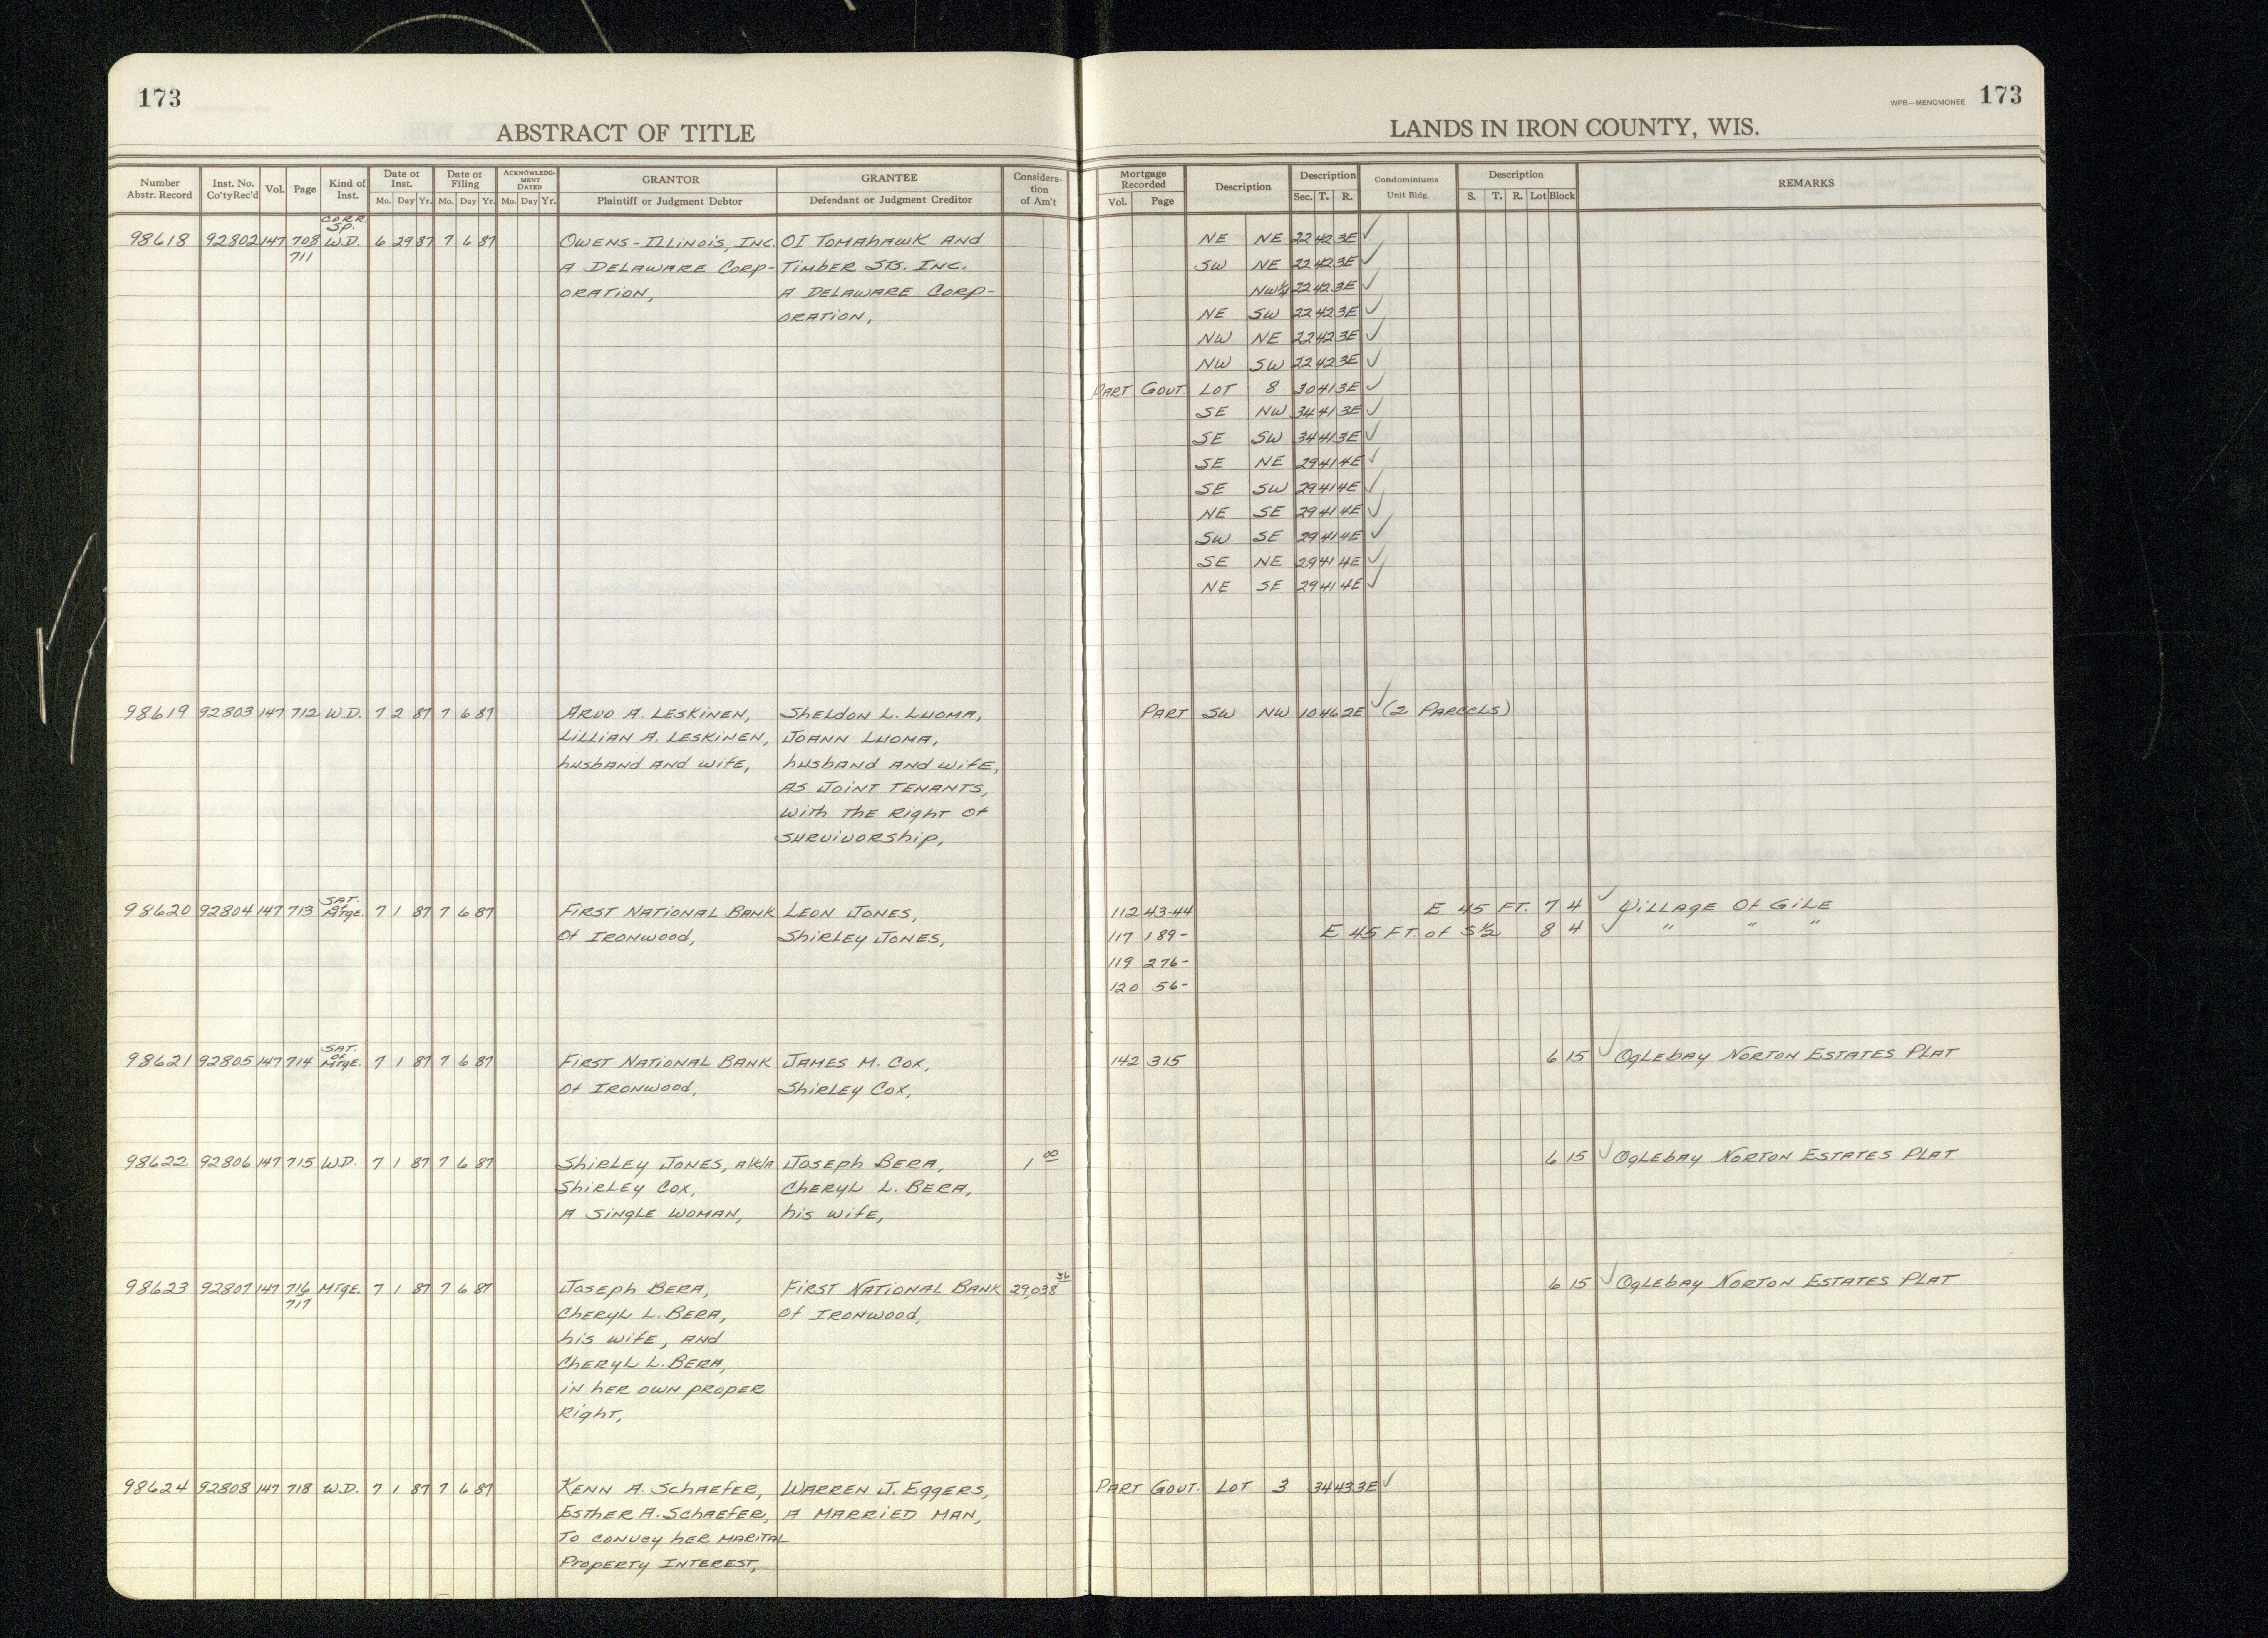 173
ABSTRACT OF TITLE
Number Abstr. Record | Inst. No. Co'ty Rec'd | Vol. | Page | Kind of Inst. | Date of Inst. Mo. Day Yr. | Date of Filing Mo. Day Yr. | ACKNOWLEDGMENT DATED Mo. Day Yr. | GRANTOR Plaintiff or Judgment Debtor | GRANTEE Defendant or Judgment Creditor | Consideration of Am't
CORR. SP.
98618 92802 147 708 W.D. 6 29 87 7 6 87 OWENS-ILLINOIS, INC. OI TOMAHAWK AND
711 A DELAWARE CORP- TIMBER STS. INC.
ORATION, A DELAWARE CORP-
ORATION,
98619 92803 147 712 W.D. 7 2 87 7 6 87 ARVO A. LESKINEN, SHELDON L. LUOMA,
LILLIAN A. LESKINEN, JOANN LUOMA,
husband AND wife, husband AND wife,
AS JOINT TENANTS,
with THE Right Of
SURVIVORSHIP,
SAT. of
98620 92804 147 713 MTGE. 7 1 87 7 6 87 FIRST NATIONAL BANK LEON JONES,
Of IRONWOOD, SHIRLEY JONES,
SAT. of
98621 92805 147 714 MTGE. 7 1 87 7 6 87 FIRST NATIONAL BANK JAMES M. COX,
Of IRONWOOD, SHIRLEY COX,
98622 92806 147 715 W.D. 7 1 87 7 6 87 SHIRLEY JONES, A/K/A JOSEPH BERA, 1 00
SHIRLEY COX, CHERYL L. BERA,
A SINGLE WOMAN, his wife,
98623 92807 147 716 MTGE. 7 1 87 7 6 87 JOSEPH BERA, FIRST NATIONAL BANK 29,038 36
717 CHERYL L. BERA, Of IRONWOOD,
his wife, AND
CHERYL L. BERA,
IN HER OWN PROPER
Right,
98624 92808 147 718 W.D. 7 1 87 7 6 87 KENN A. SCHAEFER, WARREN J. EGGERS,
ESTHER A. SCHAEFER, A MARRIED MAN,
TO CONVEY HER MARITAL
PROPERTY INTEREST,
WPB—MENOMONEE 173
LANDS IN IRON COUNTY, WIS.
Mortgage Recorded Vol. Page | Description | Description Sec. T. R. | Condominiums Unit Bldg. | Description S. T. R. Lot Block | REMARKS
NE NE 22 42 3E ✓
SW NE 22 42 3E ✓
NW¼ 22 42 3E ✓
NE SW 22 42 3E ✓
NW NE 22 42 3E ✓
NW SW 22 42 3E ✓
PART GOVT. LOT 8 30 41 3E ✓
SE NW 34 41 3E ✓
SE SW 34 41 3E ✓
SE NE 29 41 4E ✓
SE SW 29 41 4E ✓
NE SE 29 41 4E ✓
SW SE 29 41 4E ✓
SE NE 29 41 4E ✓
NE SE 29 41 4E ✓
PART SW NW 10 46 2E ✓ (2 PARCELS)
112 43-44 E 45 FT. 7 4 ✓ VILLAGE Of GILE
117 189- E 45 FT. of S½ 8 4 ✓ " " "
119 276-
120 56-
142 315 6 15 ✓ OGLEBAY NORTON ESTATES PLAT
6 15 ✓ OGLEBAY NORTON ESTATES PLAT
6 15 ✓ OGLEBAY NORTON ESTATES PLAT
PART GOVT. LOT 3 34 43 3E ✓